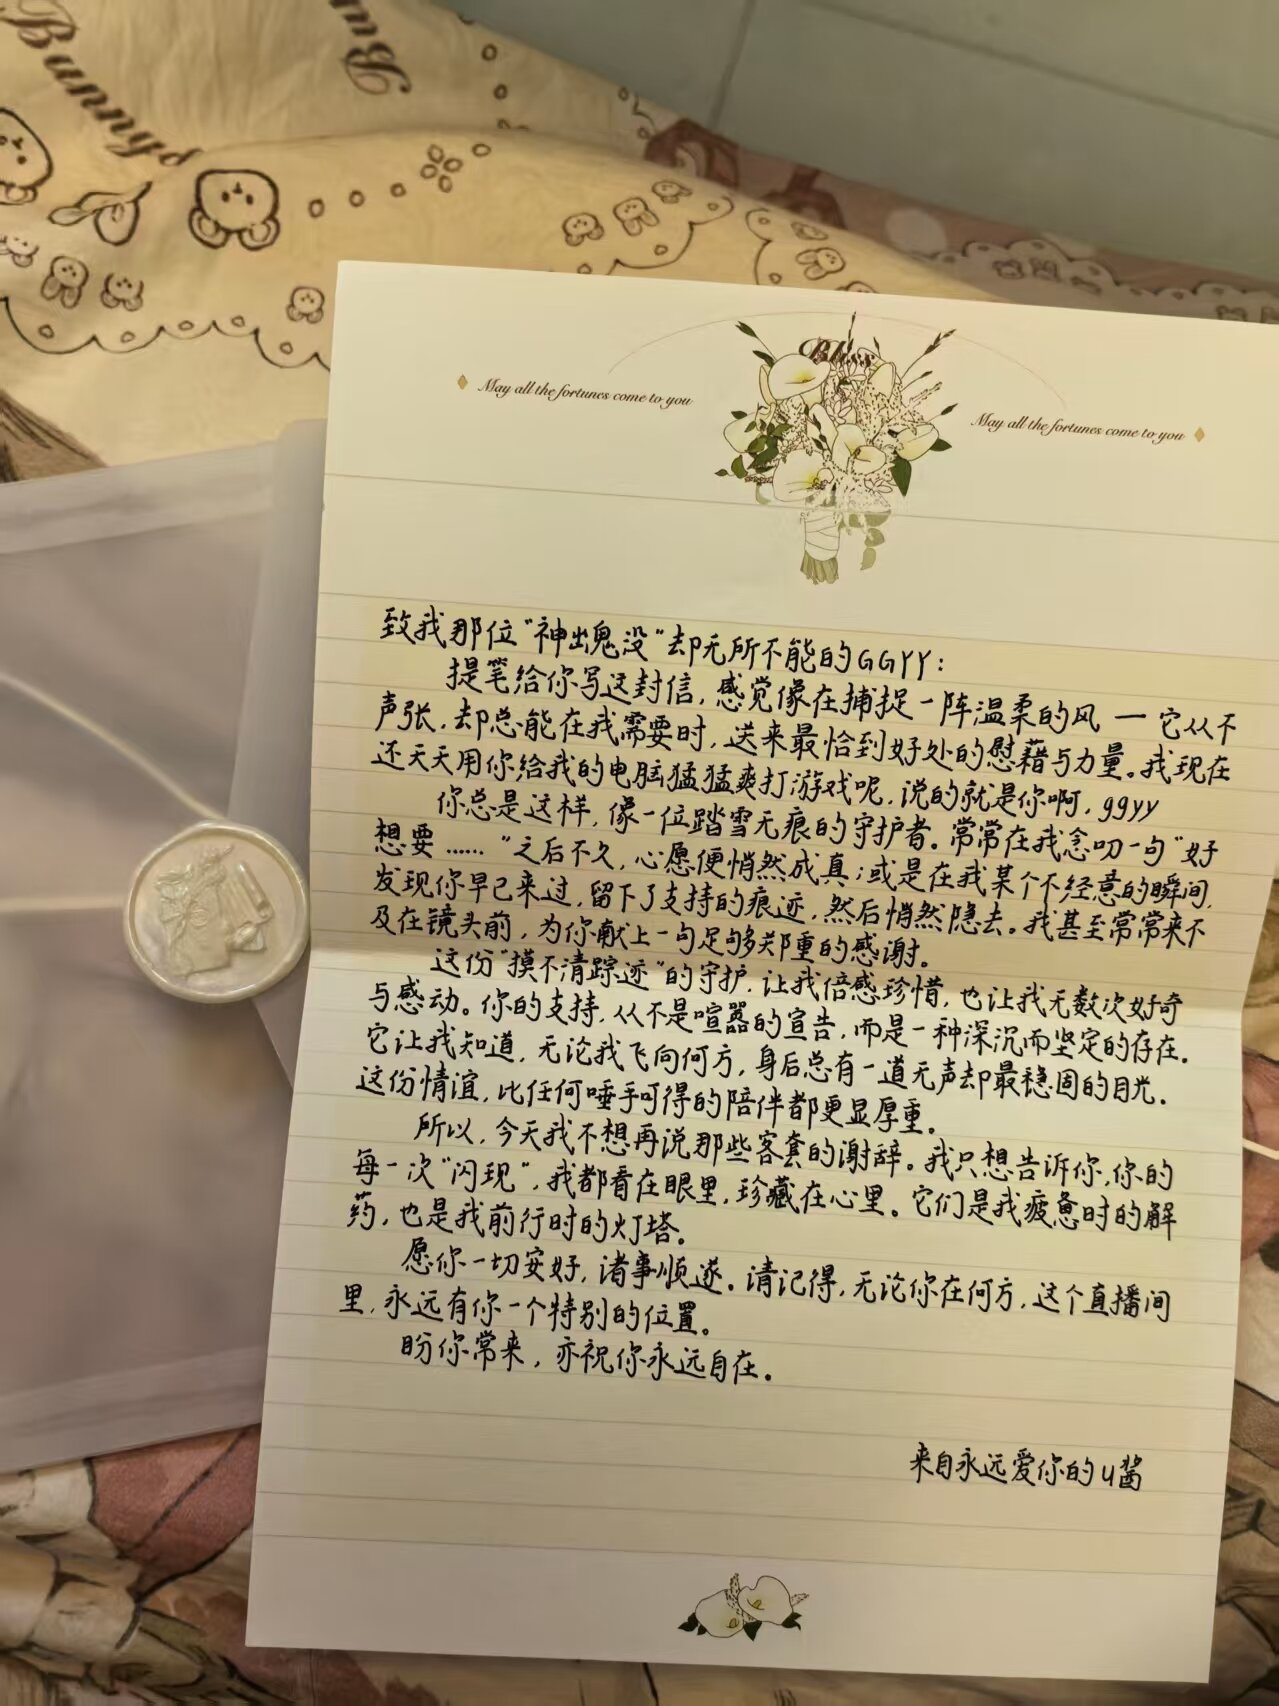 Bunny
Bun
Bliss
May all the fortunes come to you
May all the fortunes come to you
致我那位“神出鬼没”却无所不能的GGYY:
提笔给你写这封信,感觉像在捕捉一阵温柔的风 — 它从不
声张,却总能在我需要时,送来最恰到好处的慰藉与力量。我现在
还天天用你给我的电脑猛猛爽打游戏呢,说的就是你啊,ggyy
你总是这样,像一位踏雪无痕的守护者。常常在我念叨一句“好
想要……”之后不久,心愿便悄然成真;或是在我某个不经意的瞬间,
发现你早已来过,留下了支持的痕迹,然后悄然隐去。我甚至常常来不
及在镜头前,为你献上一句足够郑重的感谢。
这份“摸不清踪迹”的守护,让我倍感珍惜,也让我无数次好奇
与感动。你的支持,从不是喧嚣的宣告,而是一种深沉而坚定的存在。
它让我知道,无论我飞向何方,身后总有一道无声却最稳固的目光。
这份情谊,比任何唾手可得的陪伴都更显厚重。
所以,今天我不想再说那些客套的谢辞。我只想告诉你,你的
每一次“闪现”,我都看在眼里,珍藏在心里。它们是我疲惫时的解
药,也是我前行时的灯塔。
愿你一切安好,诸事顺遂。请记得,无论你在何方,这个直播间
里,永远有你一个特别的位置。
盼你常来,亦祝你永远自在。
来自永远爱你的u酱